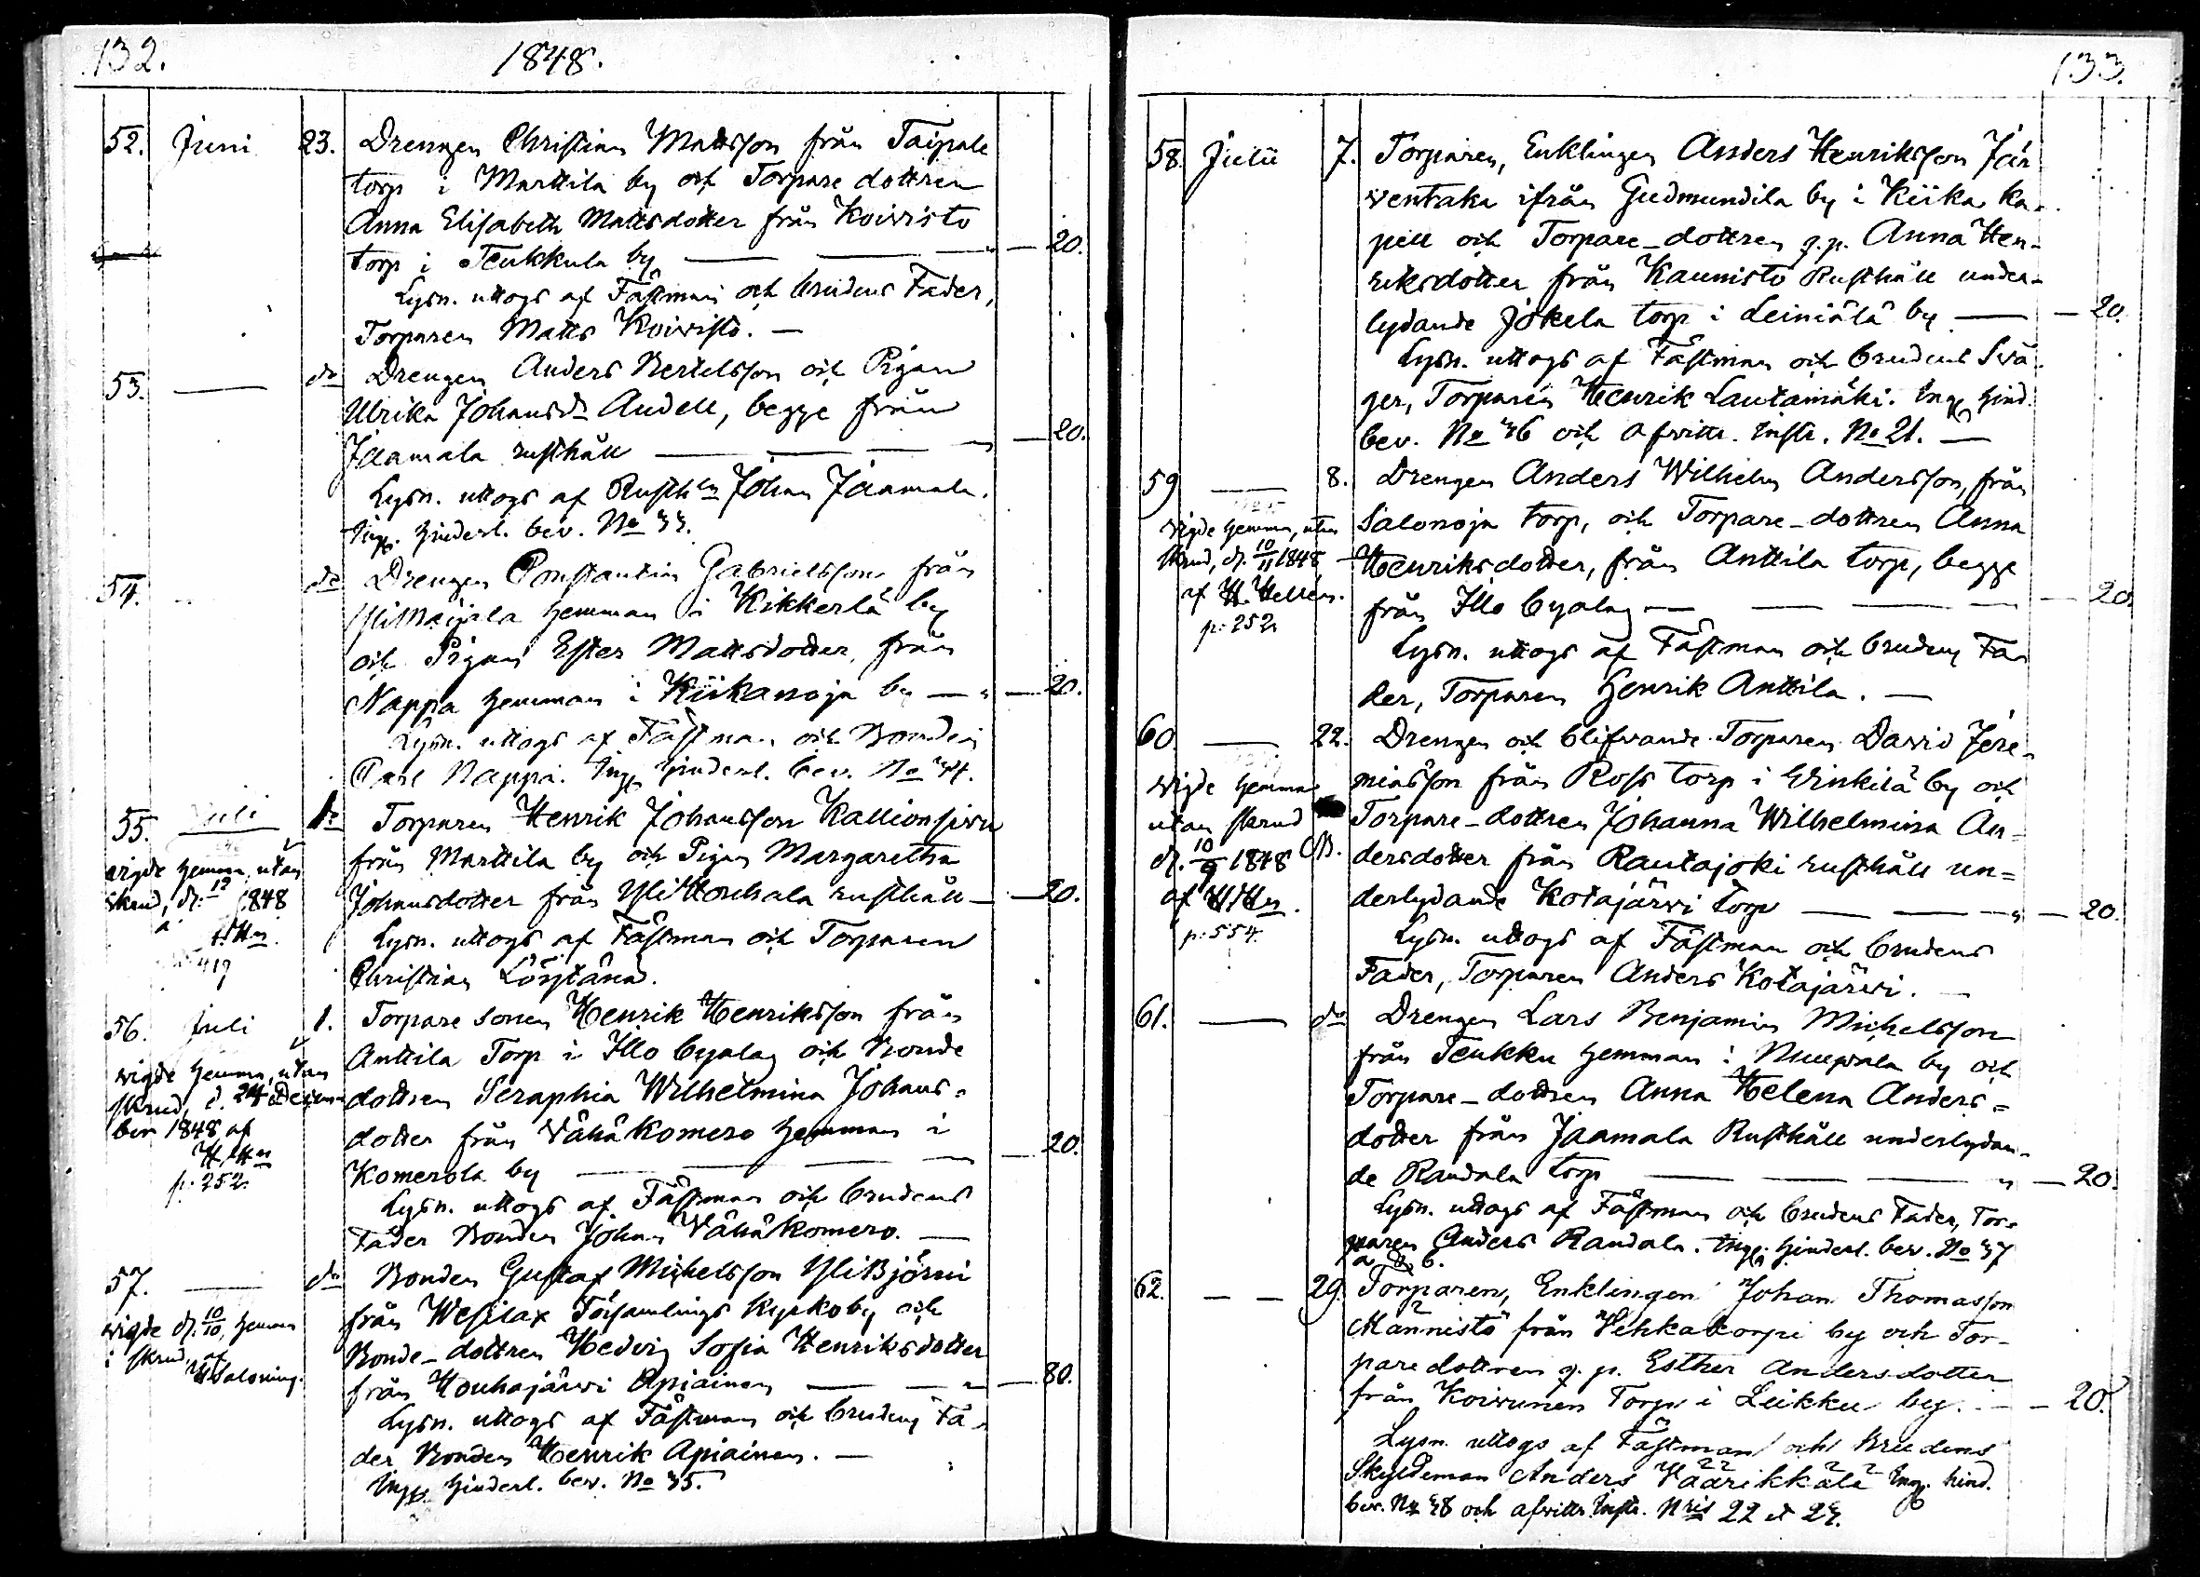 132.
1848.
52. Juni 23. Drengen Christian Mattsson från Taipale
torp i Marttila by och Torpare dottren
Anna Elisabeth Mattsdotter från Koivisto
torp i Teukkula by — 20.
Lysn. uttogs af Fästman och brudens Fader,
Torparen Matts Koivisto. —
53. — do Drengen Anders Bertelsson och Pigan
Ulrika Johansdr Andell, begge från
Jaamala rusthåll — 20.
Lysn. uttogs af Rusthn Johan Jaamala.
Ing. hinderl. bev. No 33.
54. do Drengen Constantin Gabrielsson från
hemman i Kikkerlä by
och Pigan Ester Mattsdotter, från
Nappa hemman i Kiikanoja by — 20.
Lysn. uttogs af Fästman och Bonden
Carl Nappa. Ing. hinderl. bev. No 34.
55. Juli Torparen Henrik Johansson Kallionsivu
vigde hemma, utan från Marttila by och Pigan Margaretha
skrud, d. 1848 Johansdotter från YliHouhala rusthåll — 20.
Lysn. uttogs af Fästman och Torparen
419 Christian
56. Juli 1. Torpare sonen Henrik Henriksson från
Anttila Torp i Illo byalag och Bonde
vigde hemma, utan
skrud, d. 24 Decem- dottren Seraphia Wilhelmina Johans=
ber 1848 af dotter från Vähäkomero hemman i
p. 252. Komerola by — 20.
Lysn. uttogs af Fästman och brudens
Fader Bonden Johan Vähäkomero. —
57. — do Bonden Gustaf Michelsson YliBjörni
vigde d. 10/10, hemma från Wesilax Församlings Kyrkoby och
i skrud, af Bonde-dottren Hedvig Sofia Henriksdotter
H Saloning. från Houhajärvi Apiainen — 80.
Lysn. uttogs af Fästman och brudens Fa-
der Bonden Henrik Apiainen. —
Ing. hinderl. bev. No 35.
133.
58. Julii 7. Torparen, Enklingen Anders Henriksson Jär
ventaka ifrån Gudmundila by i Kiika ka-
pell och Torpare-dottren q.p. Anna Hen-
riksdotter från Kaunisto Rusthåll under-
lydande Jokela torp i Leiniälä by — 20.
Lysn. uttogs af Fästman och brudens Svå-
ger, Torparen Henrik Lautamäki. Ing. hind.
bev. No 36 och afvittr. Instr. No 21. —
59 — 8. Drengen Anders Wilhelm Andersson, från
vigde hemma, utan Salonoja torp, och Torpare-dottren Anna
skrud, d. 10/11 1848 Henriksdotter, från Anttila torp, begge
af H. Hellen. från Illo byalag — 20.
p. 252. Lysn. uttogs af Fästman och brudens Fa
der, Torparen Henrik Anttila. —
60 — 22. Drengen och blifvande Torparen David Jere-
vigde hemma miasson från Ross torp i Winkilä by och
utan skrud Torpare-dottren Johanna Wilhelmina An=
d. 10/9 1848 dersdotter från Rautajoki rusthåll un=
af derlydande Kotajärvi torp — 20.
p. 554. Lysn. uttogs af Fästman och brudens
Fader, Torparen Anders Kotajärvi. —
61. — do Drengen Lars Benjamin Michelsson
från Teukku hemman i Nuupala by och
Torpare-dottren Anna Helena Anders=
dotter från Jaamala Rusthåll underlydan-
de Randala torp — 20.
Lysn. uttogs af Fästman och brudens Fader, Tor-
paren Anders Randala. Ing. hinderl. bev. No 37
a & b.
62. — — 29. Torparen, Enklingen Johan Thomasson
Männistö från Vehkakorpi by och Tor-
pare dottren q. p. Esther Andersdotter
från Koivunen Torp i Leikku by. — 20.
Lysn. uttogs af Fästman och Brudens
Skyldeman Anders Väärikkälä Ing. hind.
bev. No 38 och afvittr. Instr. Nris 22 et 23.